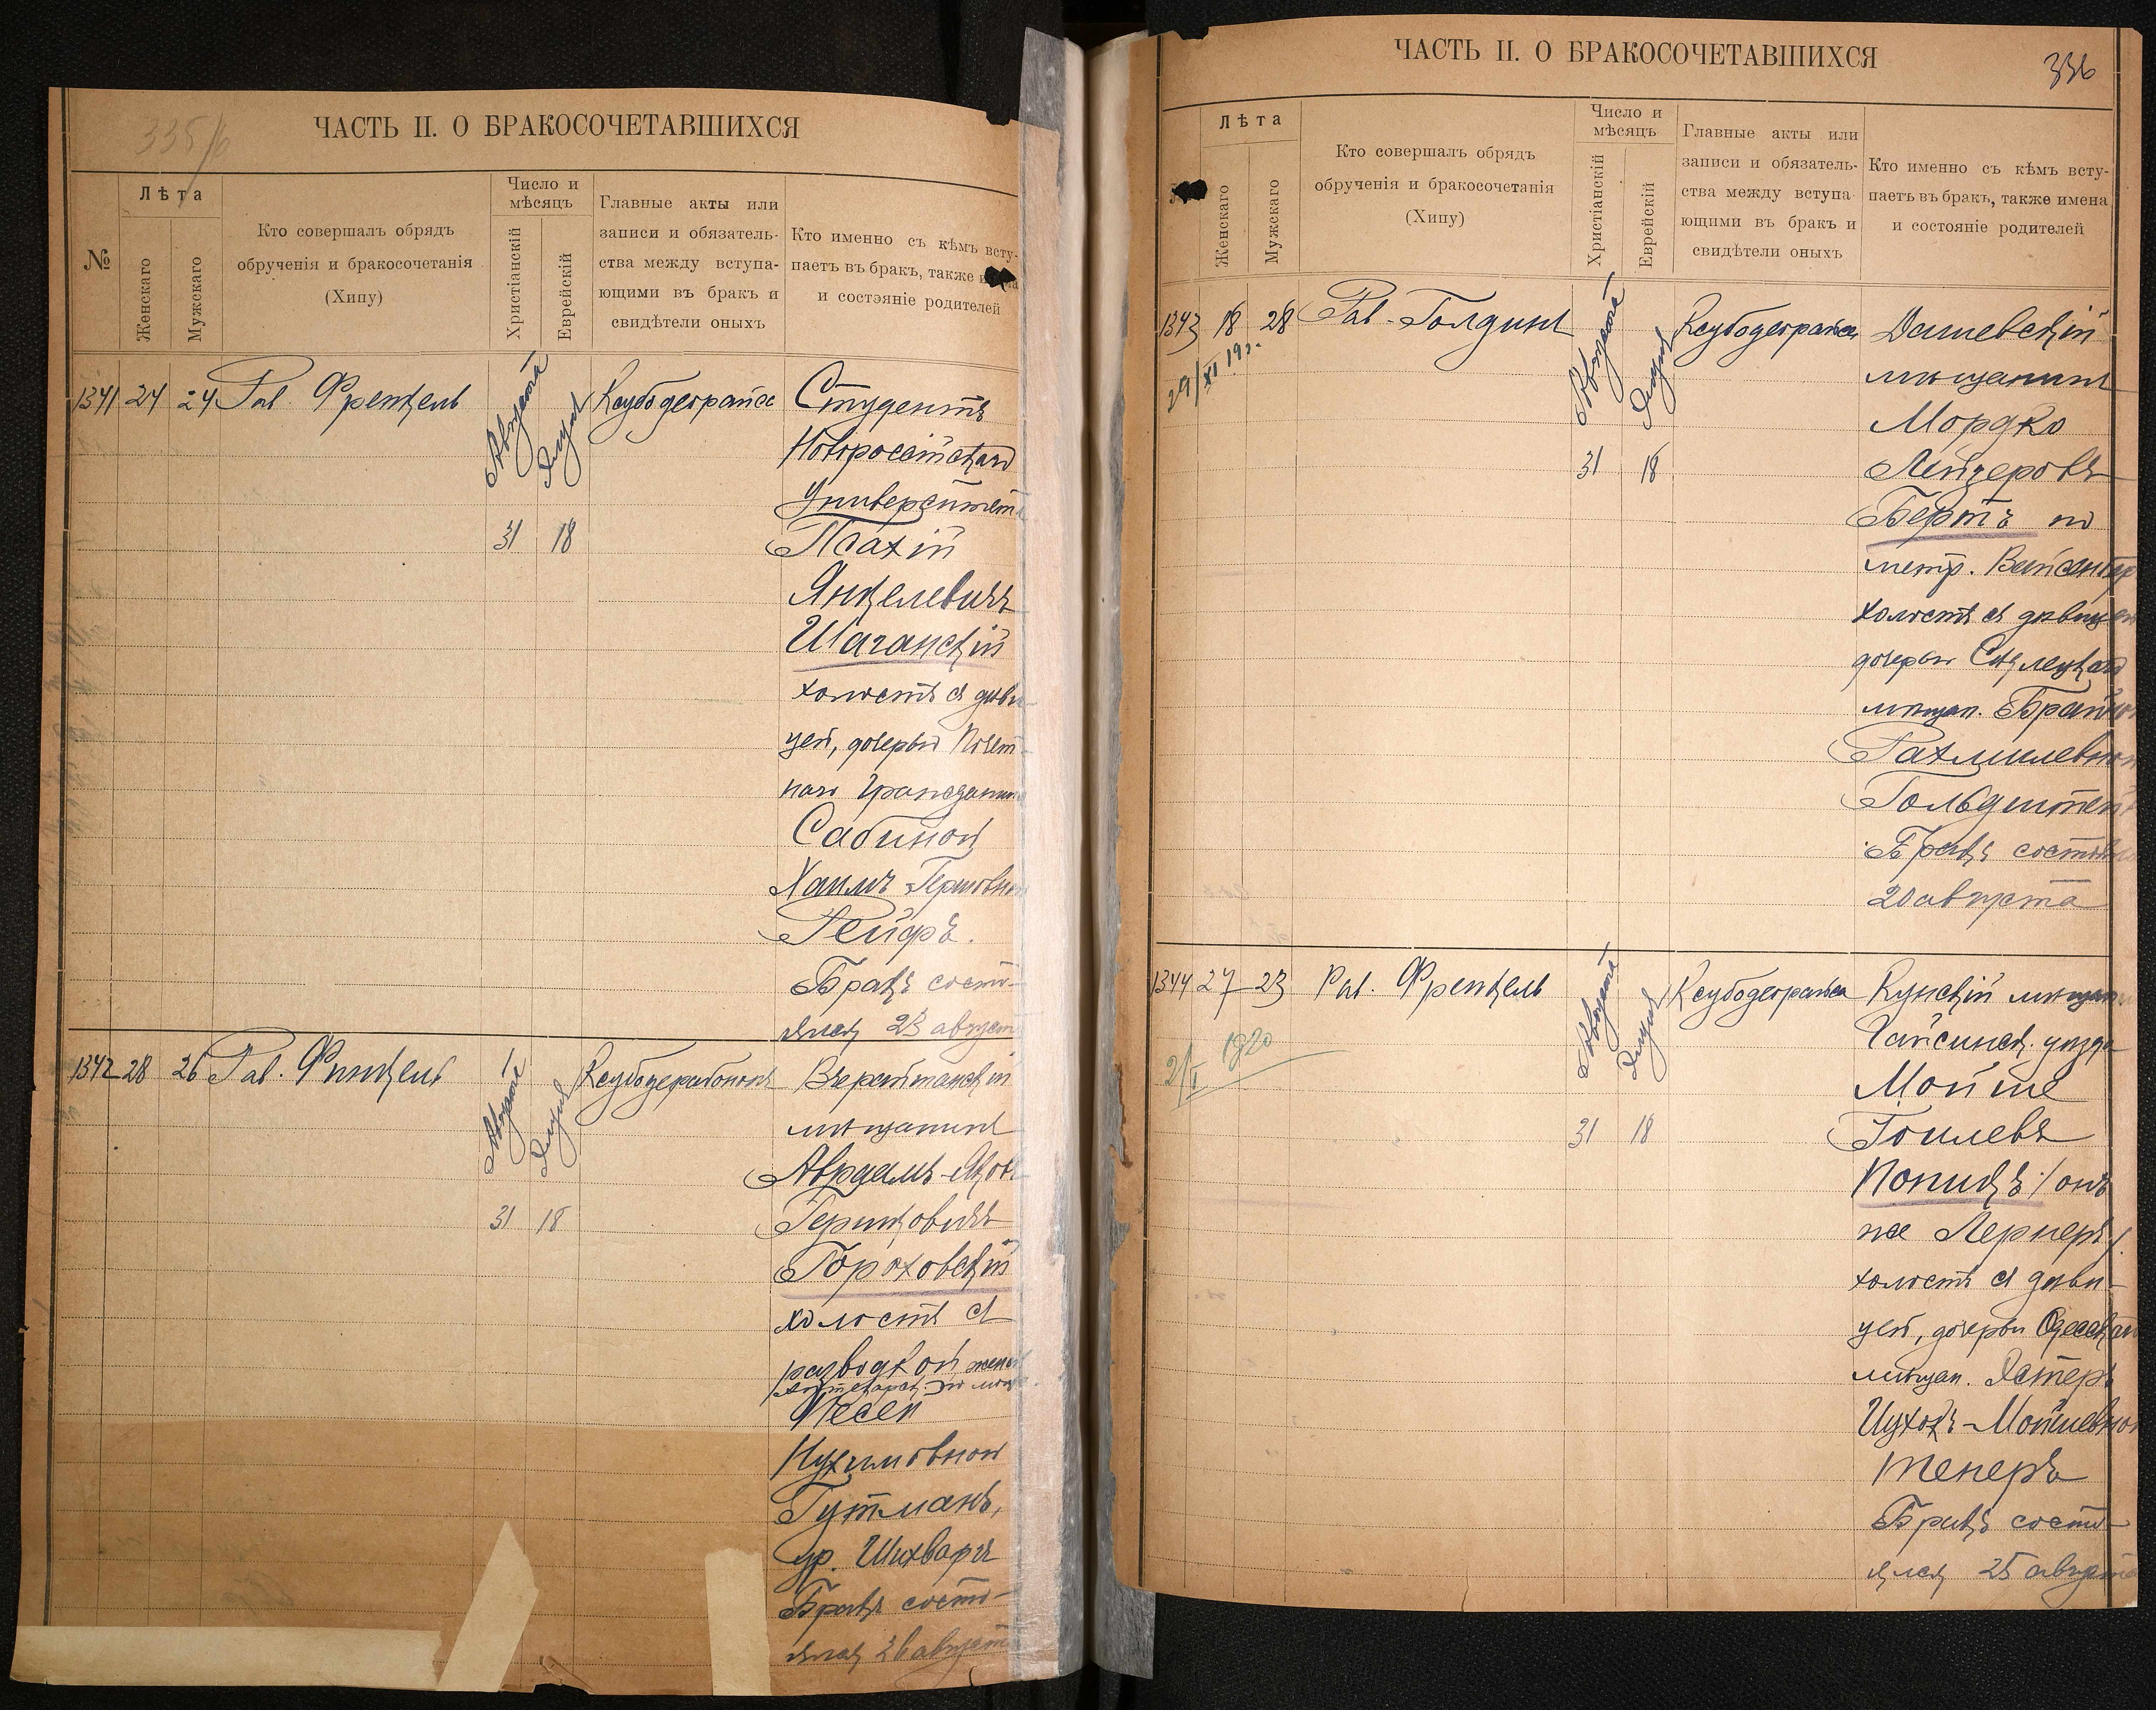 335/6
ЧАСТЬ II. О БРАКОСОЧЕТАВШИХСЯ
№
Лѣта
Женскаго
Мужскаго
Кто совершалъ обрядъ
обрученія и бракосочетанія
(Хипу)
Число и
мѣсяцъ
Христіанскій
Еврейскій
Главные акты или
записи и обязатель-
ства между вступа-
ющими въ бракъ и
свидѣтели оныхъ
Кто именно съ кѣмъ всту-
паетъ въ бракъ, также
и состояніе родителей
1341 24 24 Рав. Френкель
Августа
Элула
31 18
Ксубодеорайса
Студентъ
Новороссійскаго
Университета
Псахій
Янкелевичъ
Шаганскій
холостъ съ дѣви-
цей, дочерью Почет-
наго Гражданина
Сабиной
Хаимъ Гершовной
Рейфъ.
Бракъ состо-
ялся 23 августа
1342 28 26 Рав. Финкель
Августа
Элула
31 18
мѣщанинъ
Авраамъ-Яков
Гершковичъ
Гороховскій
холостъ съ
разводкой, женой
Песей
Нухимовной
Гутманъ,
ур. Шихварг
Бракъ состо-
ялся 26 августа
ЧАСТЬ II. О БРАКОСОЧЕТАВШИХСЯ
336
Лѣта
Женскаго
Мужскаго
Кто совершалъ обрядъ
обрученія и бракосочетанія
(Хипу)
Число и
мѣсяцъ
Христіанскій
Еврейскій
Главные акты или
записи и обязатель-
ства между вступа-
ющими въ бракъ и
свидѣтели оныхъ
Кто именно съ кѣмъ всту-
паетъ въ бракъ, также имена
и состояніе родителей
1343 18 28 Рав. Голдинъ
29/XI 19
Августа
Элула
31 18
Ксубодеорайса
Дашевскій
мѣщанинъ
Мордко
Лейзеровъ
Бертъ по
метр.
холостъ съ дѣвицей
дочерью
мѣщан.
Рахмилевной
Гольдштейн
Бракъ состоялся
20 августа
1344 27 23 Рав. Френкель
2/I 1920
Августа
Элула
31 18
Ксубодеорайса
Кунскій мѣщан.
Гайсинск. уѣзда
Мойше
Гоилевъ
Копикъ /онъ
же Лернеръ/.
холостъ съ дѣви-
цей, дочерью Одесскаго
мѣщан. Эстеръ
Мойшевной
Тенеръ
Бракъ состо-
ялся 25 августа